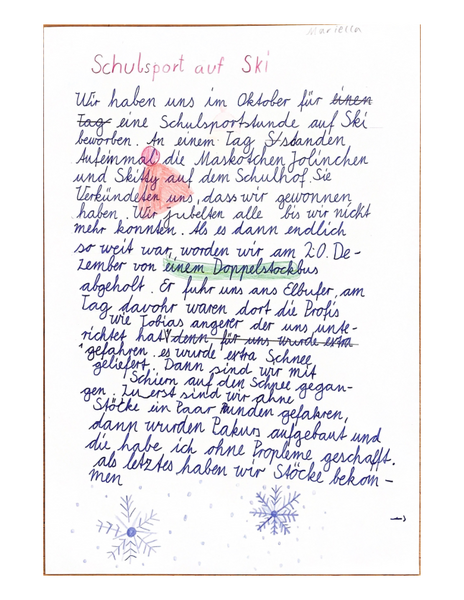 Mariella
Schulsport auf Ski
Wir haben uns im Oktober für einen
Tag eine Schulsportstunde auf Ski
beworben. An einem Tag standen
Aufeinmal die Maskotchen Jolinchen
und Skitty auf dem Schulhof. Sie
Verkündeten uns, dass wir gewonnen
haben. Wir jubelten alle bis wir nicht
mehr konnten. Als es dann endlich
so weit war, worden wir am 20. De-
zember von einem Doppelstockbus
abgeholt. Er fuhr uns ans Elbufer, am
Tag davohr waren dort die Profis
wie Tobias angerer der uns unte-
richtet hat denn für uns wurde extra
gefahren. es wurde extra Schnee
geliefert. Dann sind wir mit
Schiern auf den Schnee gegan-
gen. Zu erst sind wir ohne
Stöcke ein Paar Runden gefahren,
dann wurden Pakurs aufgebaut und
die habe ich ohne Propleme geschafft.
als letztes haben wir Stöcke bekom-
men